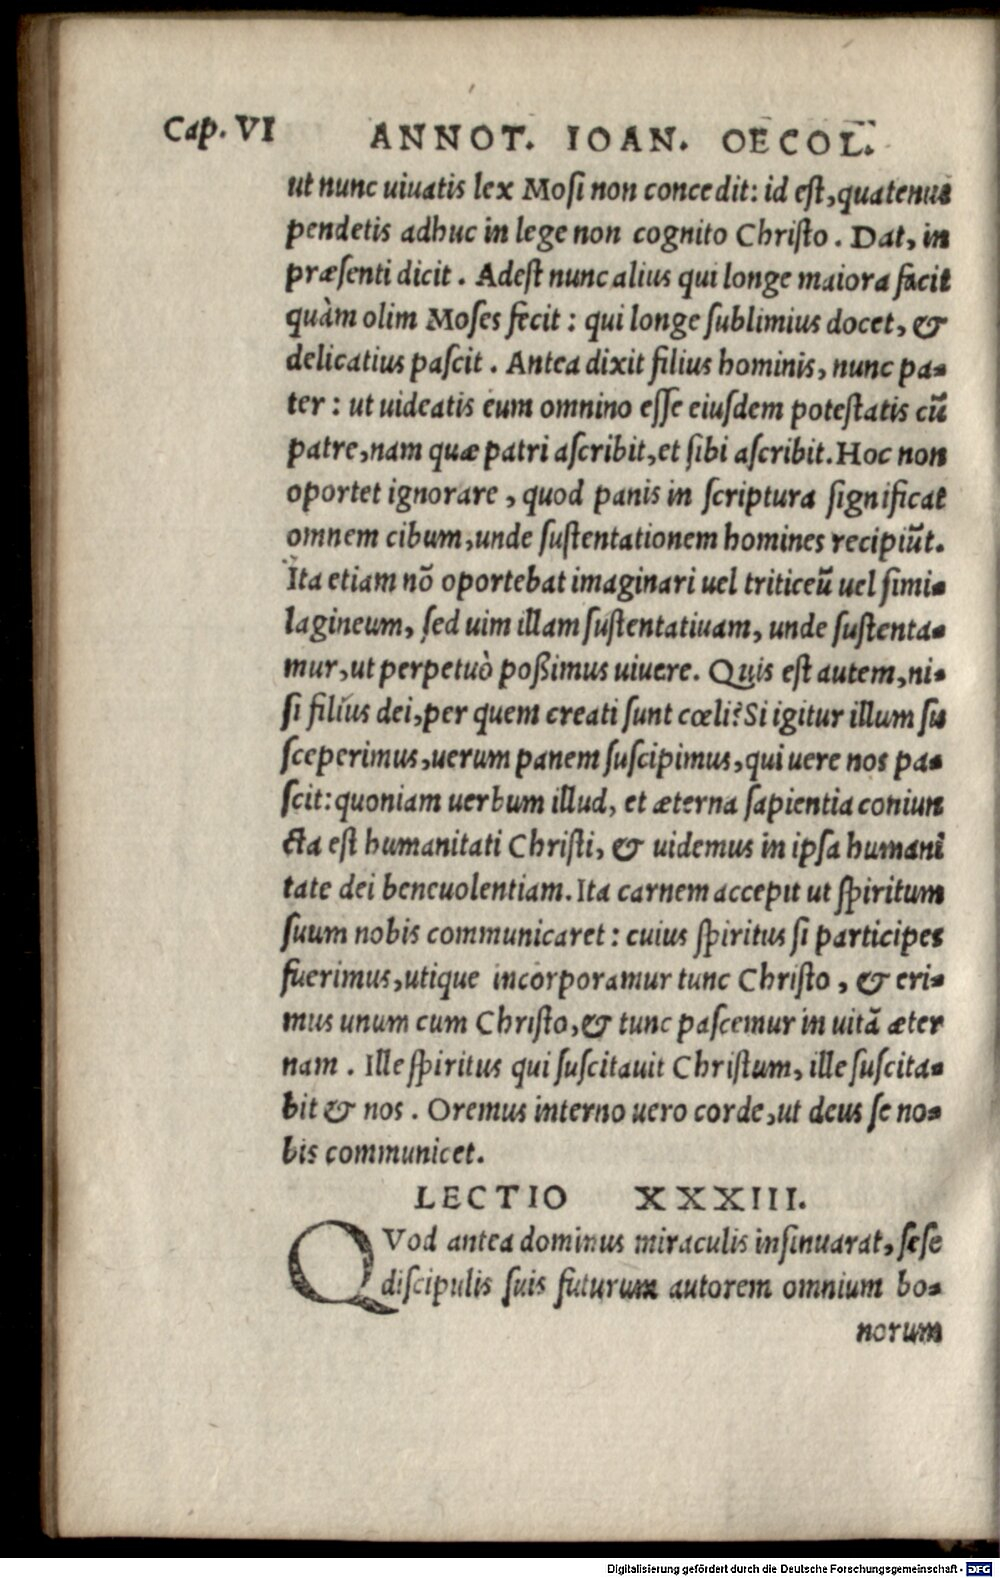 Cap. VI ANNOT. IOAN. OECOL.
ut nunc uiuatis lex Mosi non concedit: id est, quatenus
pendetis adhuc in lege non cognito Christo. Dat, in
præsenti dicit. Adest nunc alius qui longe maiora facit
quàm olim Moses fecit: qui longe sublimius docet, &
delicatius pascit. Antea dixit filius hominis, nunc pa-
ter: ut uideatis eum omnino esse eiusdem potestatis cū
patre, nam quæ patri ascribit, et sibi ascribit. Hoc non
oportet ignorare, quod panis in scriptura significat
omnem cibum, unde sustentationem homines recipiūt.
Ita etiam nō oportebat imaginari uel triticeū uel simi-
lagineum, sed uim illam sustentatiuam, unde sustenta-
mur, ut perpetuò poßimus uiuere. Quis est autem, ni-
si filius dei, per quem creati sunt cœli? Si igitur illum su
sceperimus, uerum panem suscipimus, qui uere nos pa-
scit: quoniam uerbum illud, et æterna sapientia coniun
cta est humanitati Christi, & uidemus in ipsa humani
tate dei beneuolentiam. Ita carnem accepit ut spiritum
suum nobis communicaret: cuius spiritus si participes
fuerimus, utique incorporamur tunc Christo, & eri-
mus unum cum Christo, & tunc pascemur in uitā æter
nam. Ille spiritus qui suscitauit Christum, ille suscita-
bit & nos. Oremus interno uero corde, ut deus se no-
bis communicet.
LECTIO XXXIII.
QVod antea dominus miraculis insinuarat, sese
discipulis suis futurum autorem omnium bo-
norum
Digitalisierung gefördert durch die Deutsche Forschungsgemeinschaft - DFG